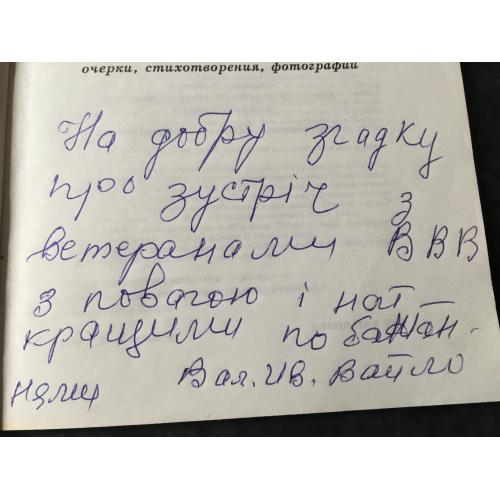 очерки, стихотворения, фотографии
На добру згадку
про зустріч з
ветеранами ВВВ
з повагою і най
кращими побажан-
нями Вал. Ив. Вайло